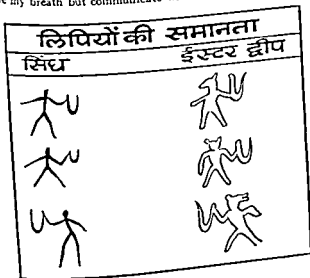 my breath but communicate
लिपियों की समानता
सिंध ईस्टर द्वीप